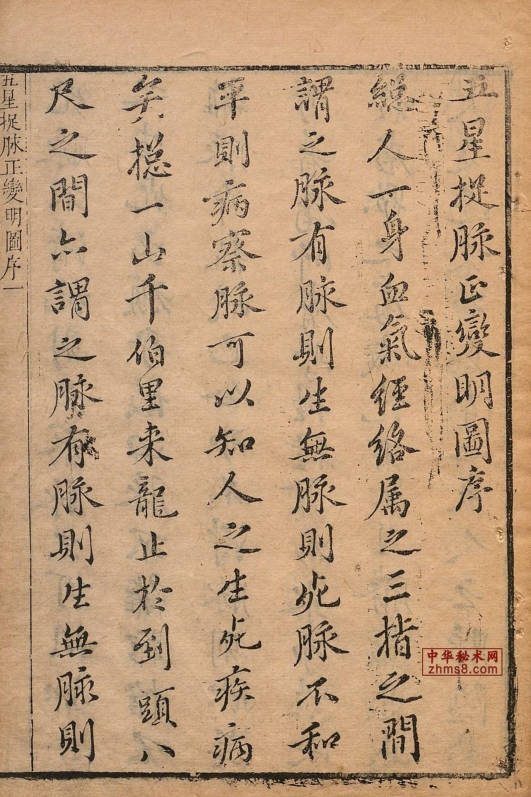 五星捉脉正變明圖序
緫人一身血氣經絡属之三指之間
謂之脉有脉則生無脉則死脉不和
平則病察脉可以知人之生死疾病
矣搃一山千伯里来龍止於到頭八
尺之間亦謂之脉有脉則生無脉則
五星捉脉正變明圖序一
中华秘术网
zhms8.com